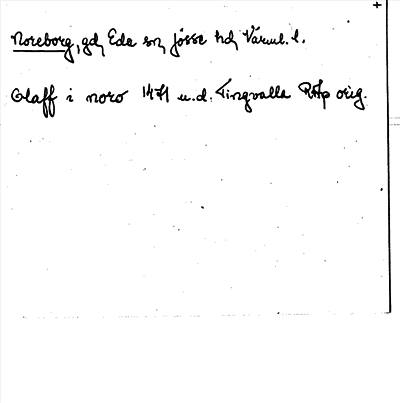 Noreborg, gd, Eda sn, Jösse hd, Värml. l.
Olaff i noro 1471 u.d. Tingvalla RAp orig.